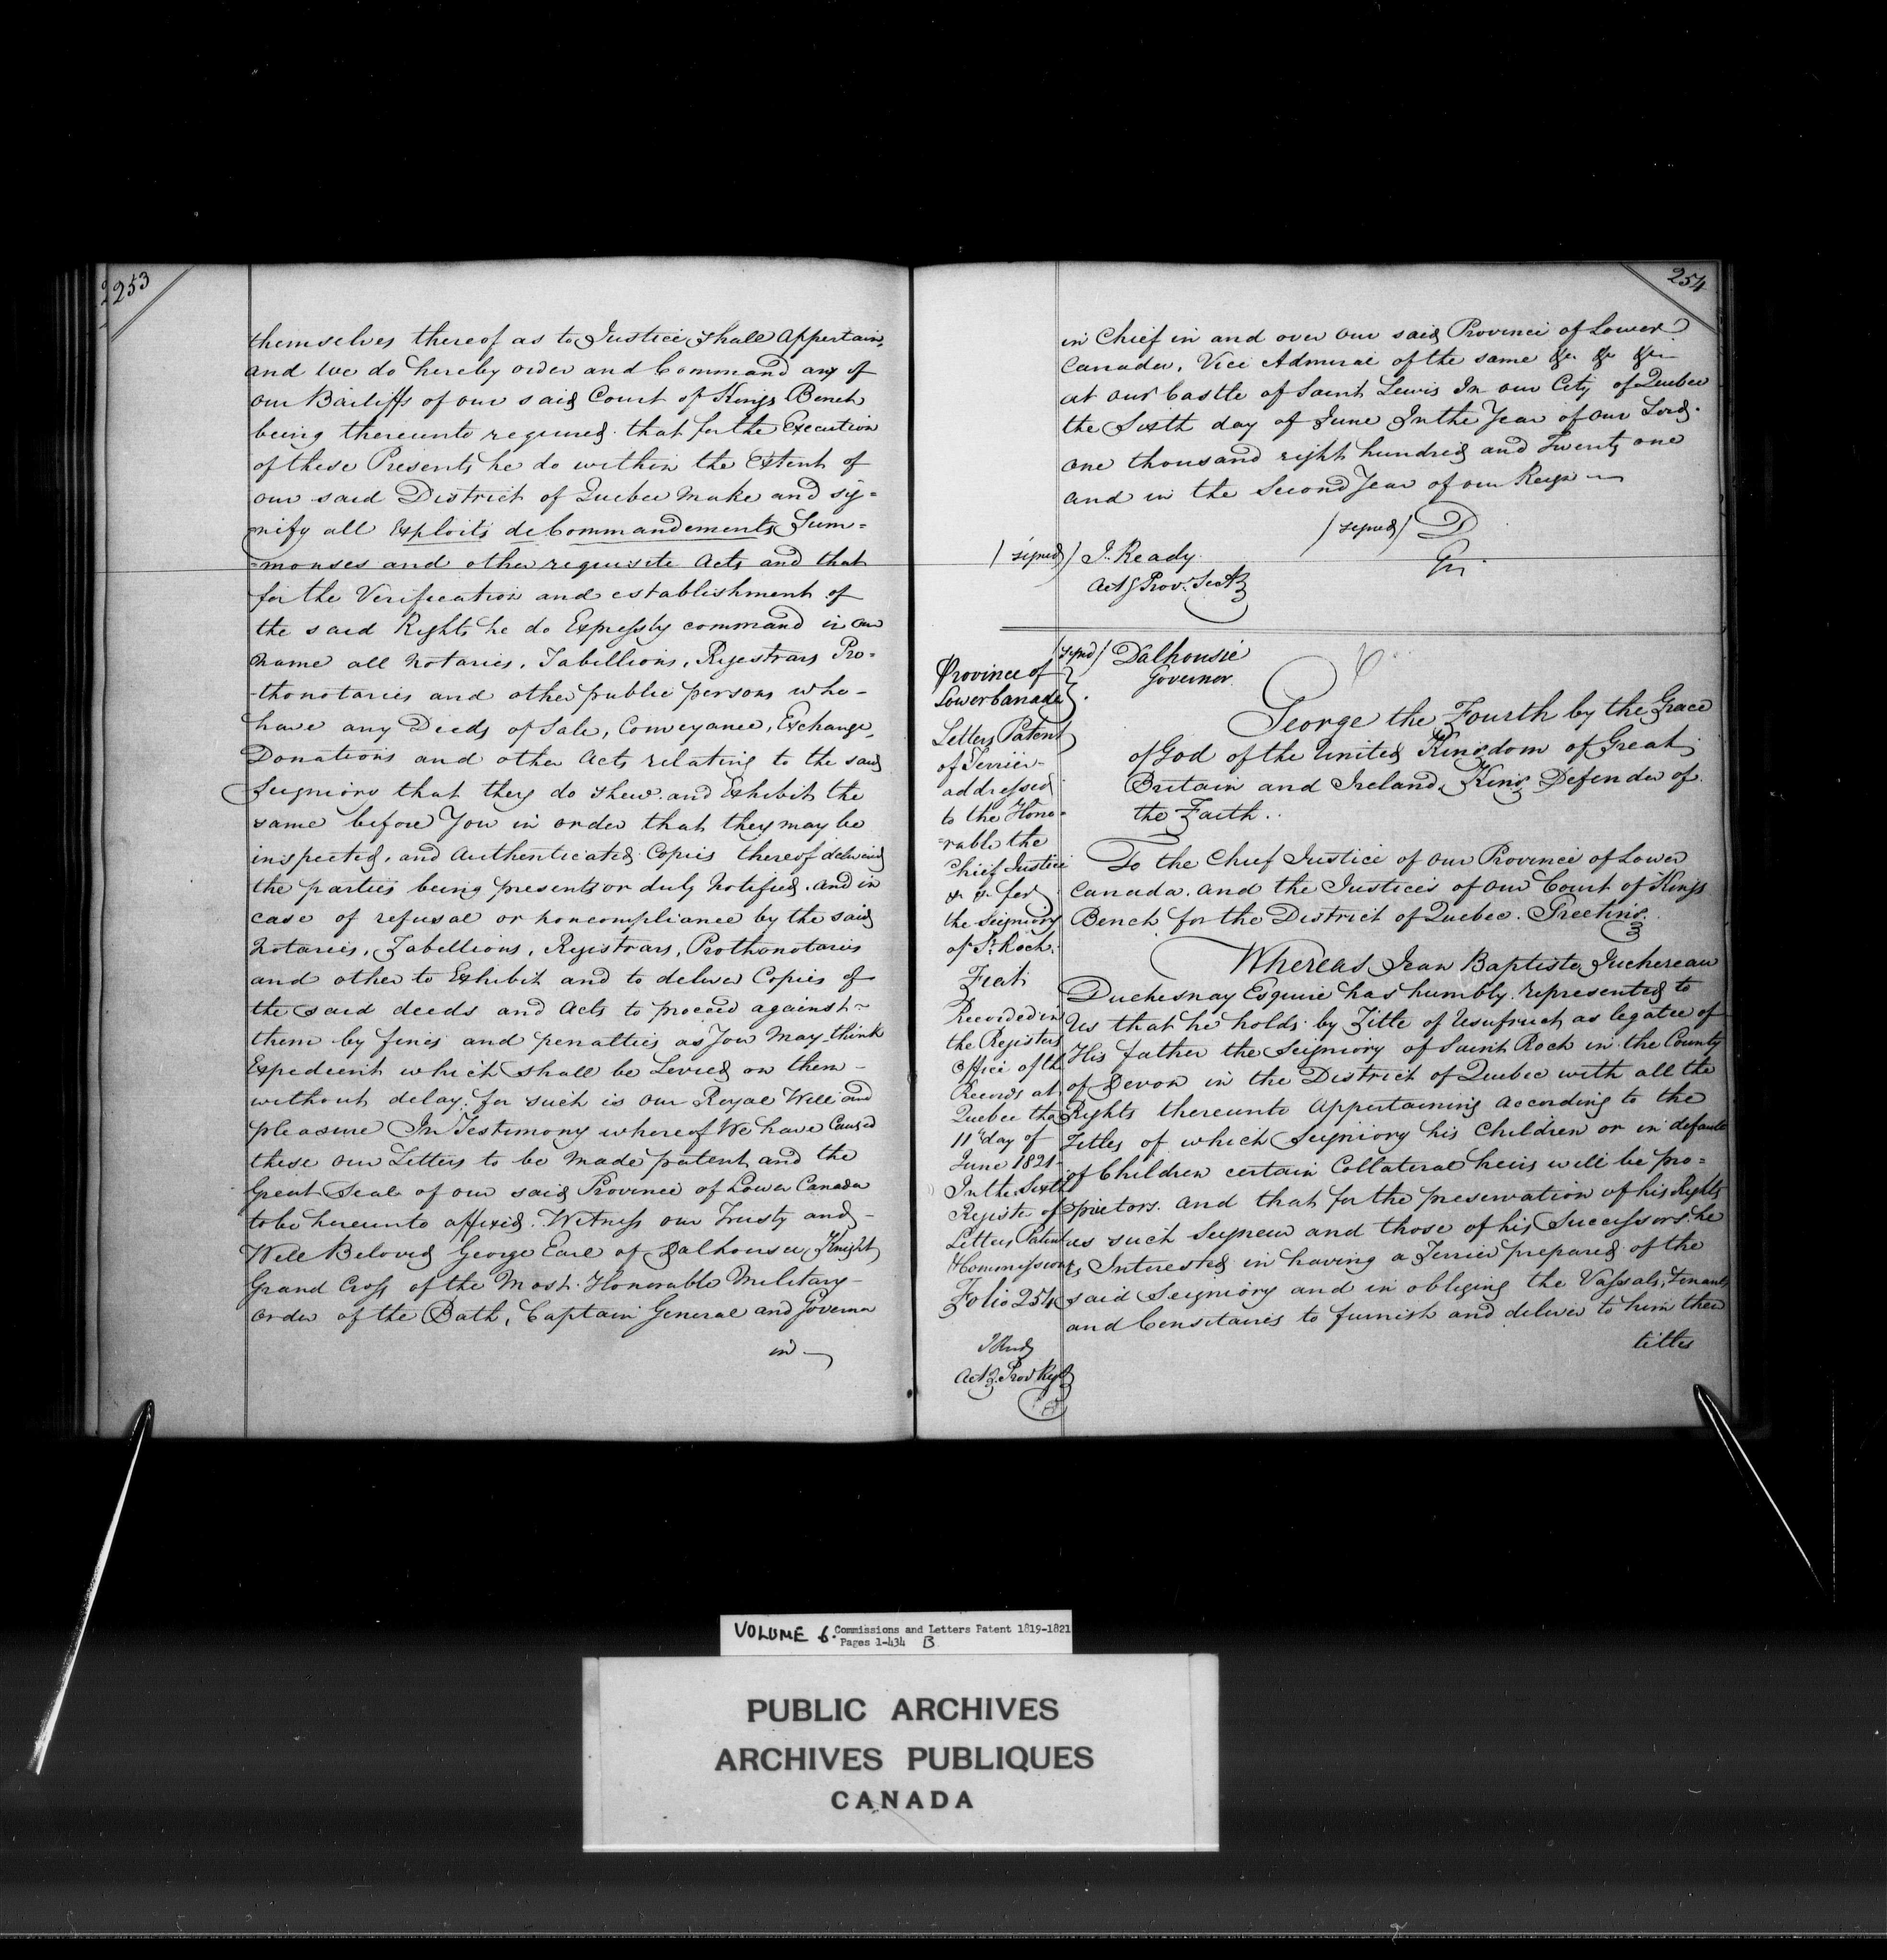 253
themselves thereof as to Justice shall Appertain,
and We do hereby order and Command any of
our Bailiffs of our said Court of Kings Bench
being thereunto required that for the Execution
of these Presents he do within the Extent of
our said District of Quebec make and sig=
nify all Exploits de Commandements Sum=
=monses and other requisite Acts and that
for the Verification and establishment of
the said Rights he do Expressly command in our
name all Notaries, Tabillions, Registrars Pro=
-thonotaries and other public persons who-
have any Deeds of Sale, Conveyance, Exchange,
Donations and other Acts relating to the said
Seigniory that they do shew and Exhibit the
same before You in order that they may be
inspected, and Authenticated Copies thereof delivered
the parties being present or duly Notified. And in
case of refusal or noncompliance by the said
Notaries, Tabellions, Registrars, Prothonotaries
and other to Exhibit and to deliver Copies of
the said deeds and Acts to proceed against
them by fines and penalties as You May think
Expedient which shall be Levied on them-
without delay, for such is our Royal Will and
pleasure In Testimony whereof We have Caused
these our Letters to be Made patent and the
Great Seal of our said Province of Lower Canada
to be hereunto affixed. Witness our Trusty and-
Well Beloved George Earl of Dalhousie, Knight
Grand Cross of the Most Honorable Military-
order of the Bath, Captain General and Governor
in
254
in Chief in and over our said Province of Lower
Canada, Vice Admiral of the same &c &c &c
at our Castle of Saint Lewis In our City of Quebec
the Sixth day of June In the Year of our Lord
One thousand eight hundred and Twenty one
and in the Second Year of our Reign
/signed/ D
Gr.
/signed/ J. Ready
Actg Prov. Secty
/sgnd/ Dalhousie
Governor
Province of
Lower Canada
Letters Patent
of Terrier
addressed
to the Hono=
=rable the
Chief Justice
&c &c for
the Seigniory
of St. Roch.
Fiat
Recorded in
the Registers
Office of the
Records at
Quebec the
11th day of
June 1821
In the Sixth
Register of
Letters Patent
& Commissions
Folio 254
J Ready
Actg. Prov Regr
George the Fourth by the Grace
of God of the United Kingdom of Great
Britain and Ireland, King Defender of
the Faith.
To the Chief Justice of our Province of Lower
Canada. and the Justices of our Court of Kings
Bench for the District of Quebec. Greeting.
Whereas Jean Baptiste Juchereau
Duchesnay Esquire has humbly represented to
Us that he holds by Title of Usufruct as legatee of
His father the Seigniory of Saint Roch in the County
of Devon in the District of Quebec with all the
Rights thereunto Appertaining According to the
Titles of which Seigniory his Children or in default
of Children certain Collateral heirs will be pro=
prietors. And that for the preservation of his Rights
as such Seigneur and those of his Successors he
is Interested in having a Terrier prepared of the
said Seigniory and in obliging the Vassals, Tenants
and Censitaires to furnish and deliver to him their
titles
VOLUME 6. Commissions and Letters Patent 1819-1821
Pages 1-434 B
PUBLIC ARCHIVES
ARCHIVES PUBLIQUES
CANADA